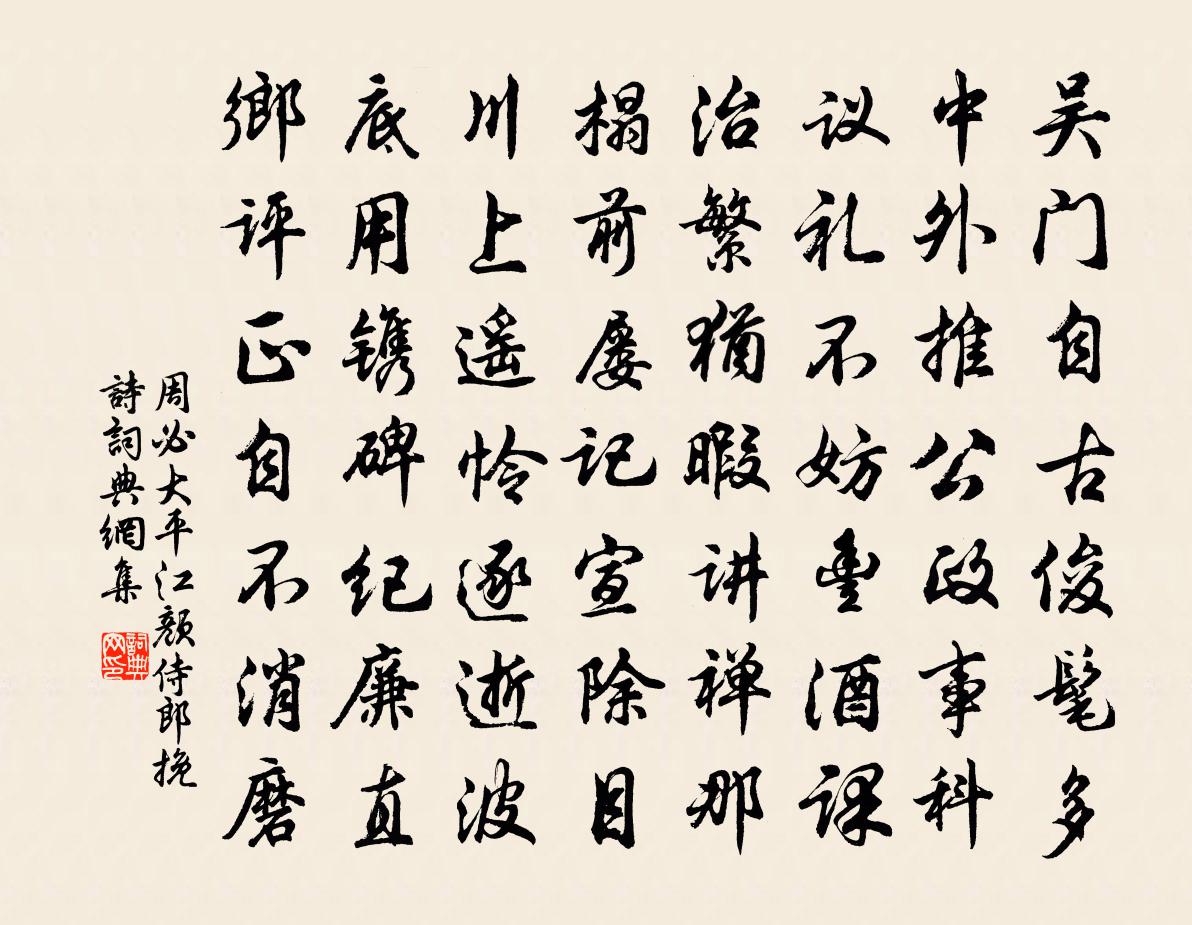 吴门自古俊髦多
中外推公政事科
议礼不妨豊酒课
治繁犹暇讲禅那
榻前屡记宣除目
川上遥怜逐逝波
底用镌碑纪廉直
鄉评正自不消磨
周必大平江颜侍郎挽
詩詞典網集
詞典网印